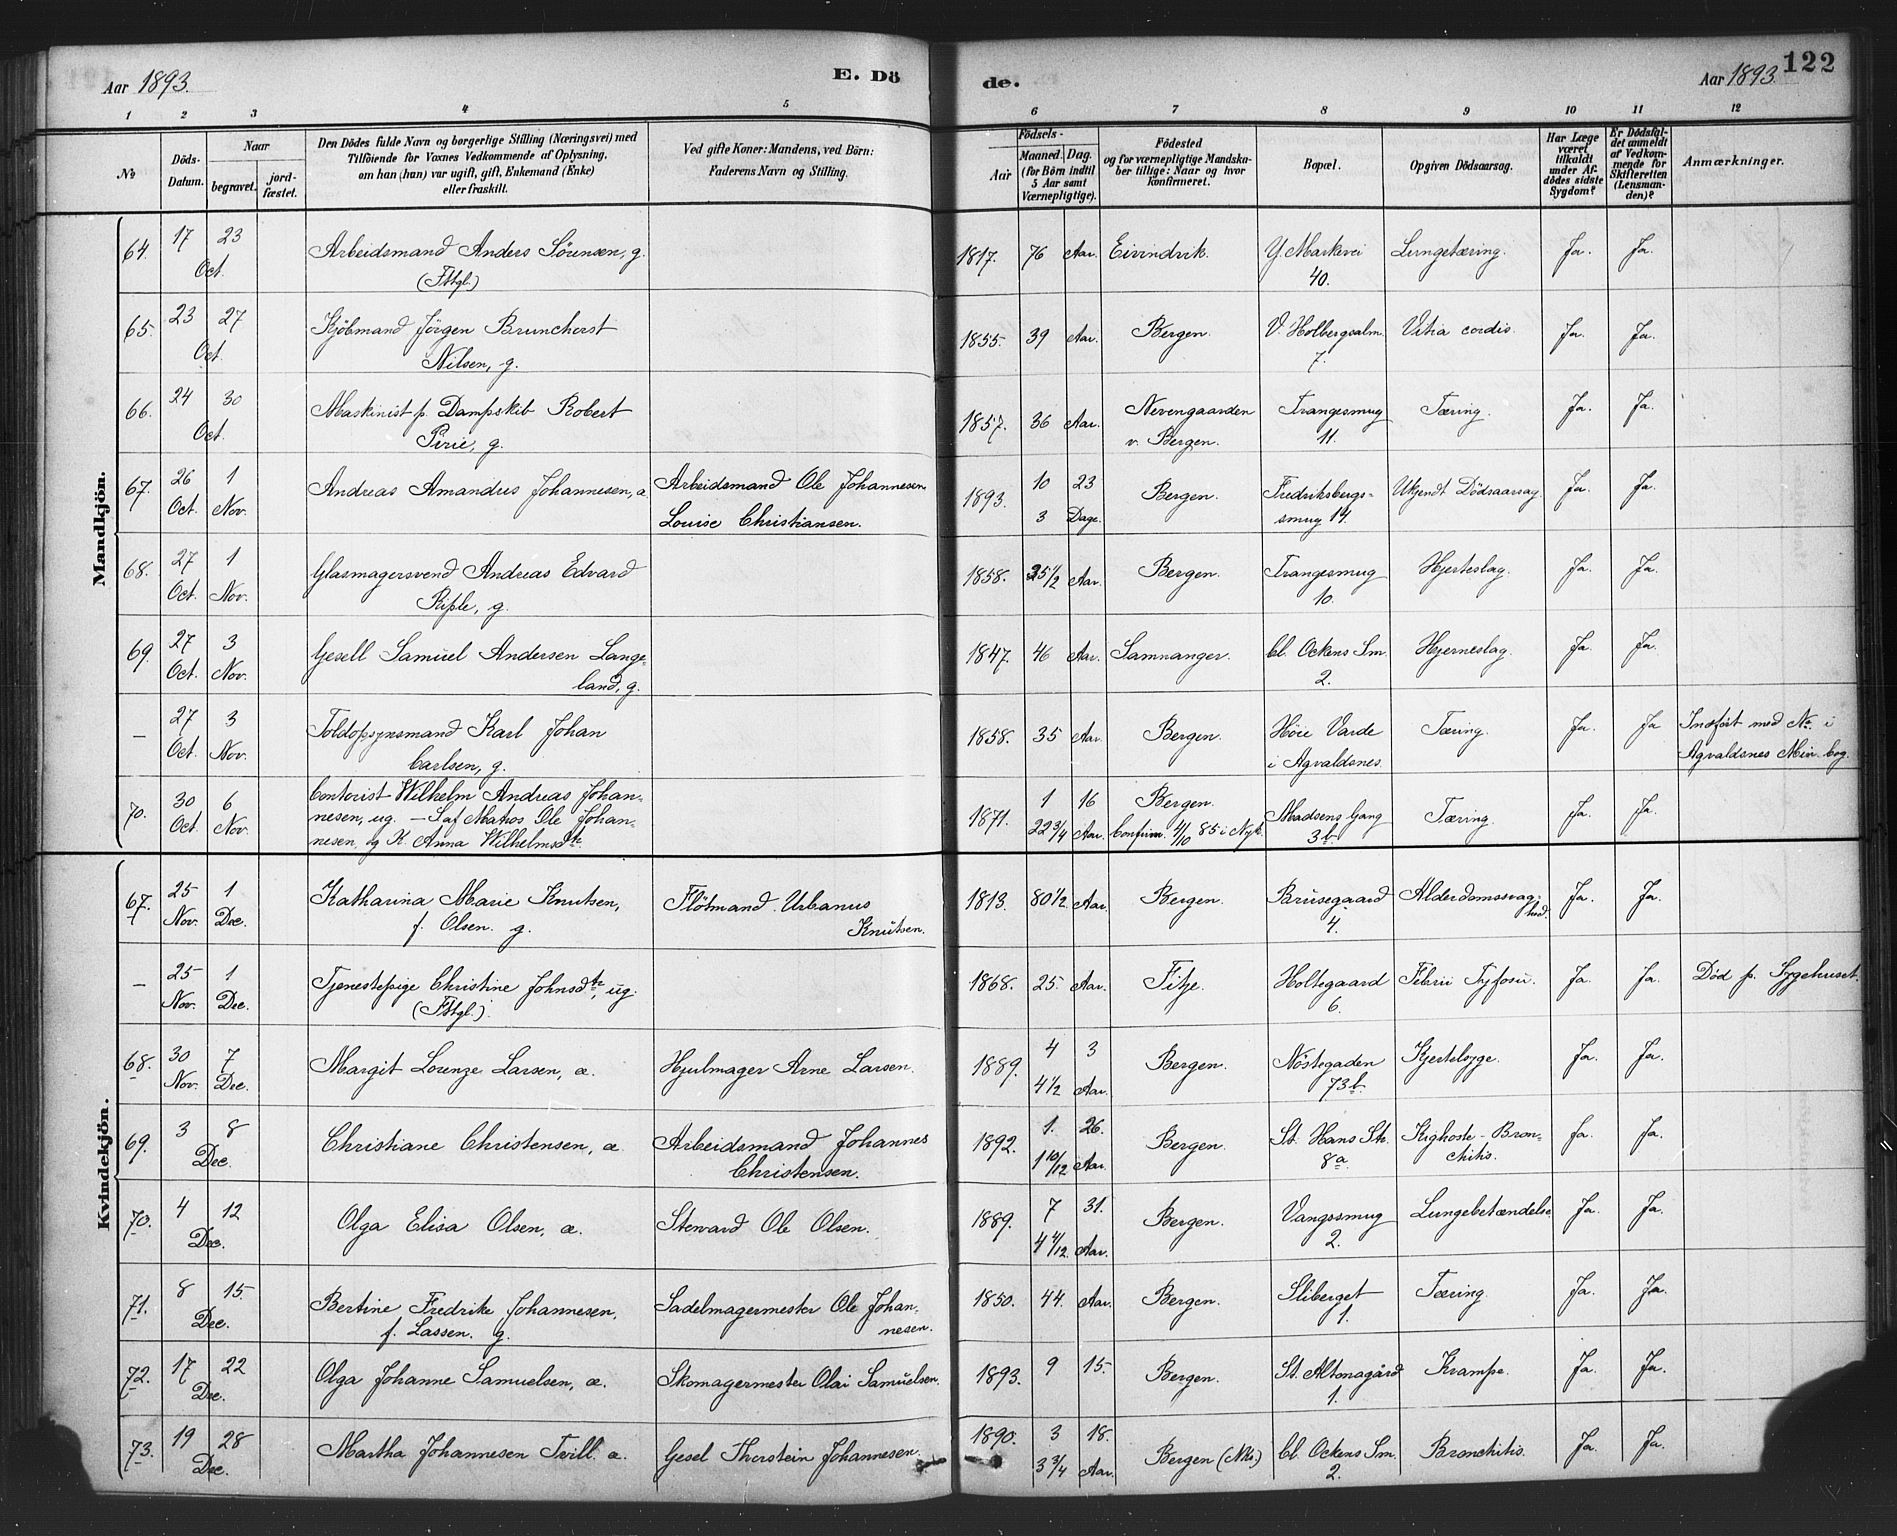 Aar 1893. E. Dö
de. Aar 1893. 122
1 2 3 4 5 6 7 8 9 10 11 12
No
Döds-Datum.
Naar
begravet. jord-fæstet.
Den Dödes fulde Navn og borgerlige Stilling (Næringsvei) med
Tilföiende for Voxnes Vedkommende af Oplysning,
om han (hun) var ugift, gift, Enkemand (Enke)
eller fraskilt.
Ved gifte Koner: Mandens, ved Börn:
Faderens Navn og Stilling.
Födsels-
Aar Maaned. Dag.
(for Börn indtil
5 Aar samt
Værnepligtige).
Födested
og for værnepligtige Mandska-
ber tillige: Naar og hvor
konfirmeret.
Bopæl.
Opgiven Dödsaarsag.
Har Læge
været
tilkaldt
under Af-
dödes sidste
Sygdom?
Er Dödsfal-
det anmeldt
af Vedkom-
mende for
Skifteretten
(Lensman-
den)?
Anmærkninger.
Mandkjön.
64. 17 23 Oct. Arbeidsmand Anders Sörensen, g.
(Fttgl.)
1817. 76 Aar. Eivindvik. Y. Markevei 40. Lungetæring. Ja. Ja.
65. 23 27 Oct. Kjöbmand Jörgen Brunchorst
Nilsen, g.
1855. 39 Aar. Bergen. V. Holbergsalm. 7. Vitia cordis. Ja. Ja.
66. 24 30 Oct. Maskinist p. Dampskib Robert
Pirie, g.
1857. 36 Aar. Nevengaarden v. Bergen. Trangesmug 11. Tæring. Ja. Ja.
67. 26 Oct. 1 Nov. Andreas Amandus Johannesen, æ. Arbeidsmand Ole Johannesen
Louise Christiansen.
1893. 10 23 3 Dage. Bergen. Fredriksbergs-smug 14. Ukjendt Dödsaarsag. Ja. Ja.
68. 27 Oct. 1 Nov. Glasmagersvend Andreas Edvard
Riple, g.
1858. 35 1/2 Aar. Bergen. Trangesmug 10. Hjerteslag. Ja. Ja.
69. 27 Oct. 3 Nov. Gesell Samuel Andersen Lange-
land, g.
1847. 46 Aar. Samnanger. Cl. Ockens Sm. 2. Hjerneslag. Ja. Ja.
– 27 Oct. 3 Nov. Toldopsynsmand Karl Johan
Carlsen, g.
1858. 35 Aar. Bergen. Höie Varde i Agvaldsnes. Tæring. Ja. Ja Indført med No. i
Agvaldsnes Min. bog.
70. 30 Oct. 6 Nov. Contorist Wilhelm Andreas Johan-
nesen, ug. – S. af Matros Ole Johan-
nesen, og K. Anna Wilhelmsdtr.
1871. 1 16 22 3/4 Aar. Bergen. Confirm. 4/10 85 i Nyk. Madsens Gang 3b. Tæring. Ja. Ja.
Kvindekjön.
67. 25 Nov. 1 Dec. Katharina Marie Knutsen,
f. Olsen. g. Flötmand Urbanus
Knutsen.
1813. 80 1/2 Aar. Bergen. Brusegaard 4. Alderdomssvag-hed. Ja. Ja.
– 25 Nov. 1 Dec. Tjenestepige Christine Johnsdtr, ug.
(Fttgl.)
1868. 25. Aar. Fitje. Holtegaard 6. Febrii Tyfosu. Ja. Ja. Död p. Sygehuset.
68. 30 Nov. 7 Dec. Margit Lorenze Larsen, æ. Hjulmager Arne Larsen.
1889. 4 3 4 1/2 Aar. Bergen. Nöstegaden 73b. Hjertesyge. Ja. Ja.
69. 3 8 Dec. Christiane Christensen, æ. Arbeidsmand Johannes
Christensen.
1892. 1. 26. 1 10/12 Aar. Bergen. St. Hans Str. 8a. Kighoste – Bron-chitis. Ja. Ja.
70. 4 12 Dec. Olga Elisa Olsen, æ. Steward Ole Olsen.
1889. 7 31. 4 4/12 Aar. Bergen. Vangssmug 2. Lungebetændelse. Ja. Ja.
71. 8 15. Dec. Bertine Fredrike Johannesen,
f. Lassen. g. Sadelmagermester Ole Johan-
nesen.
1850. 44. Aar. Bergen. Sliberget 1. Tæring. Ja. Ja.
72. 17 22 Dec. Olga Johanne Samuelsen, æ. Skomagermester Olai Samuelsen.
1893. 9 15. Bergen. St. Altonagård 1. Krampe. Ja. Ja.
73. 19 28 Dec. Martha Johannesen Tvill. æ. Gesel Thorstein Johannesen.
1890. 3 18. 3 3/4 Aar. Bergen (Nk.) Cl. Ockens Sm. 2. Bronchitis. Ja. Ja.